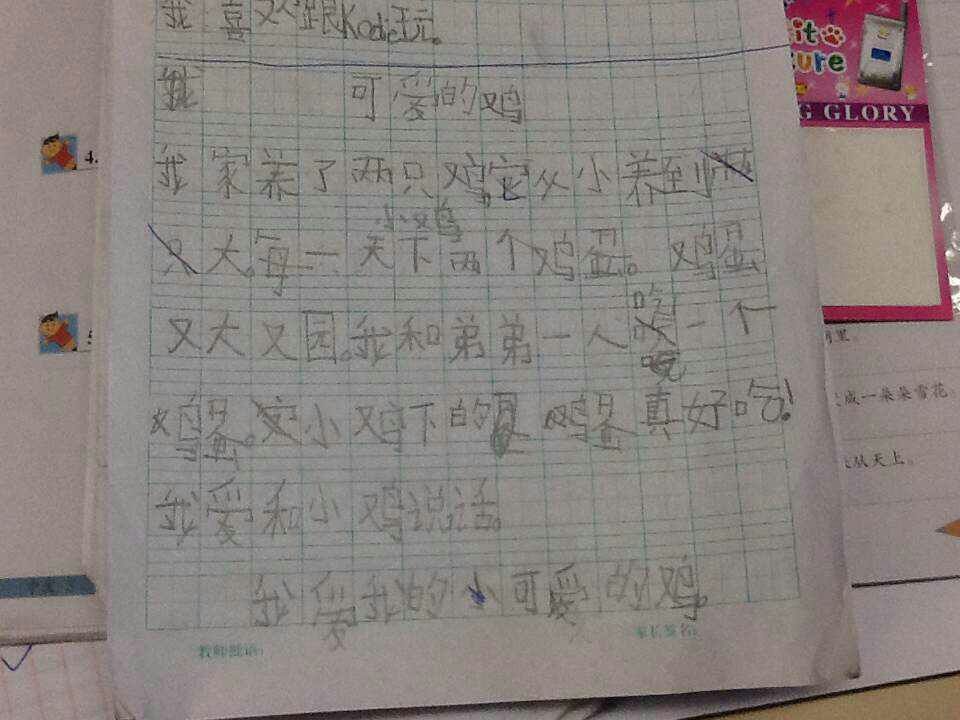 我喜欢跟Kode玩。
可爱的鸡
我家养了两只鸡,它从小养到
大,每一天小鸡下两个鸡蛋。鸡蛋
又大又园。我和弟弟一人吃一个
鸡蛋。小鸡下的鸡蛋真好吃!
我爱和小鸡说话。
我爱我的小可爱的鸡。
教师批语:
家长签名:
4.
GLORY
成一朵朵雪花。
从天上。